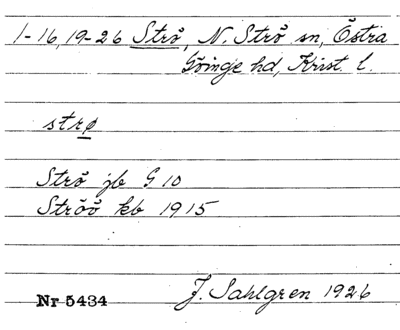 1-16, 19-26 Strö, N. Strö sn, Östra
Göinge hd, Krist. l.
strø
Strö jb G 10
Ströö kb 1915
J. Sahlgren 1926
Nr 5434